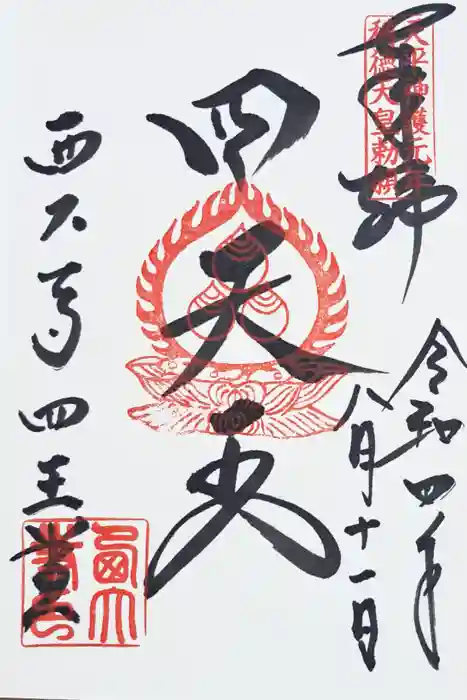 奉拝
天平神護元年
称徳天皇勅願
令和四年
八月十一日
四天王
西大寺四王堂